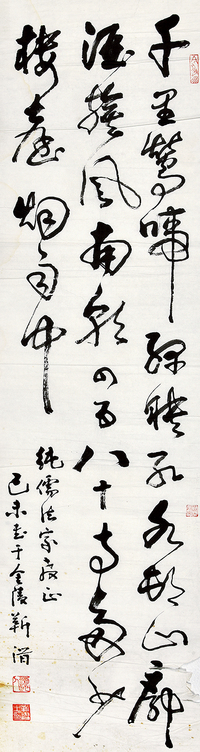 千里鶯啼綠映紅水村山郭
酒旗風南朝四百八十寺多少
樓臺烟雨中
純儒法家教正
己未書于金陵靳